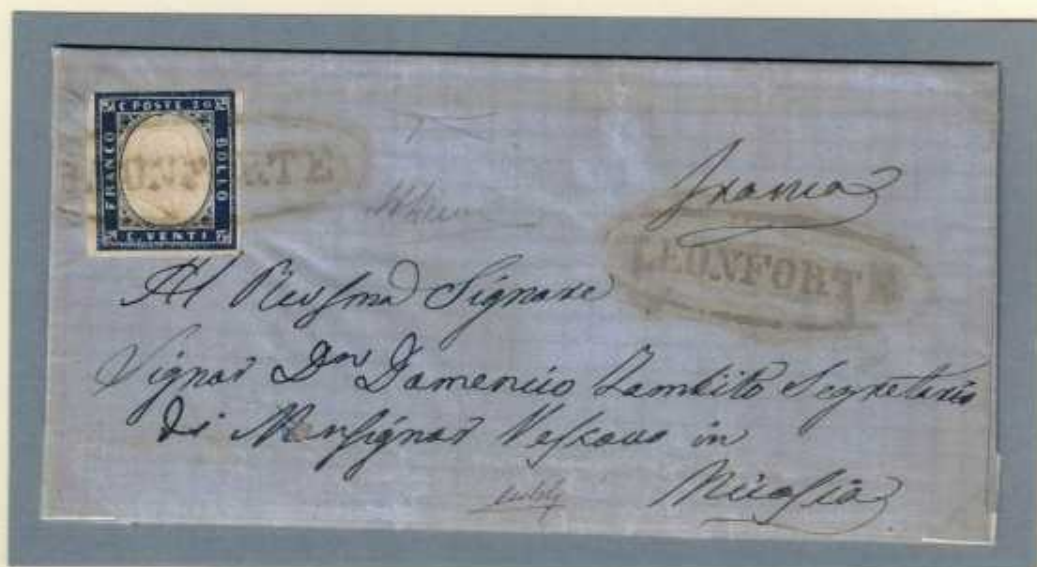 C. POSTE. 20
FRANCO
BOLLO
C. VENTI
LEONFORTE
franca
LEONFORTE
Al Revsmo Signore
Signor Dn Domenico Zambito Segretario
di Monsignor Vescovo in
Nicosia